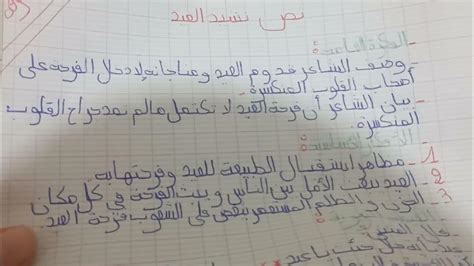 نص نشيد العيد
الفكرة العامة:
- وصف الشاعر قدوم العيد و مناجاته لإدخال الفرحة على
أصحاب القلوب المنكسرة.
- بيان الشاعر أن فرحة العيد لا تكتمل مالم نمد جراح القلوب
المنكسرة.
الأفكار الأساسية:
1- مظاهر استقبال الطبيعة للعيد وفرحتها به
2- العيد يبعث الأمل بين الناس و يبث الفرحة في كل مكان
3- الحزن و الظلم المستعمر ينغص على الشعوب فرحة العيد